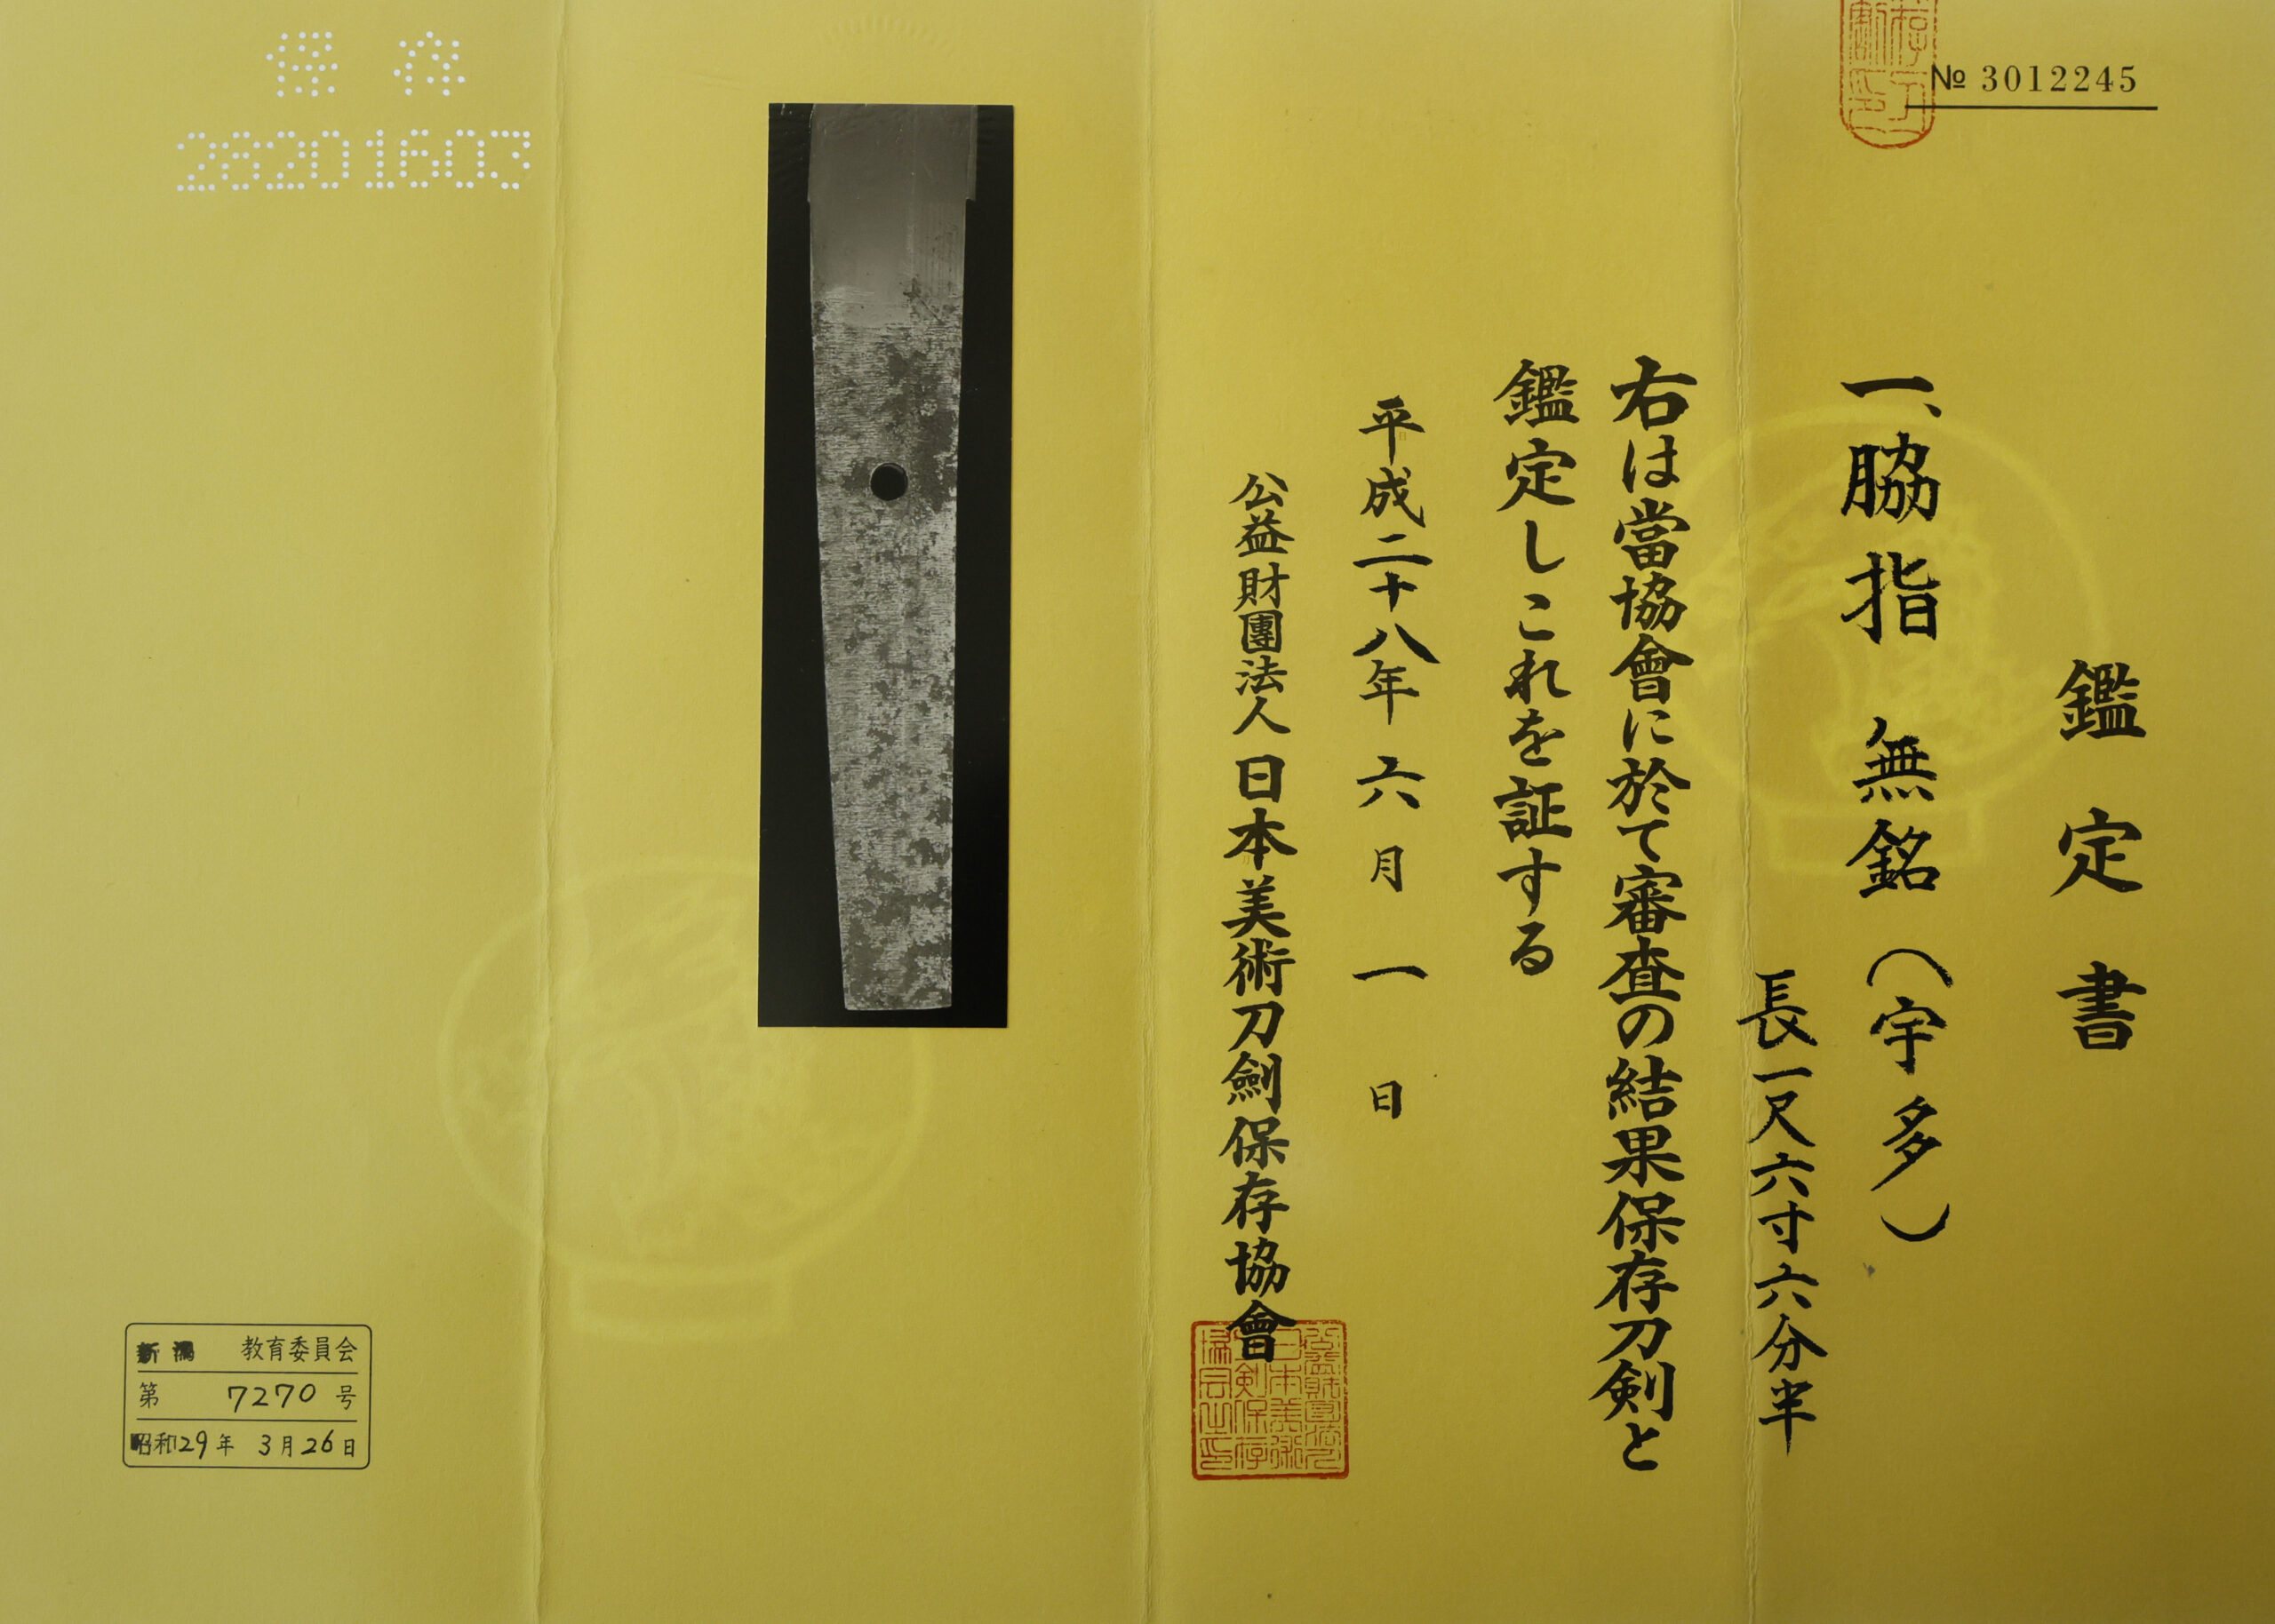 № 3012245
鑑定書
一、脇指 無銘(宇多)
長一尺六寸六分半
右は當協會に於て審査の結果保存刀剣と
鑑定しこれを証する
平成二十八年六月一日
公益財團法人日本美術刀劍保存協會
保存
28201603
新潟 教育委員会
第 7270 号
昭和29年 3月26日